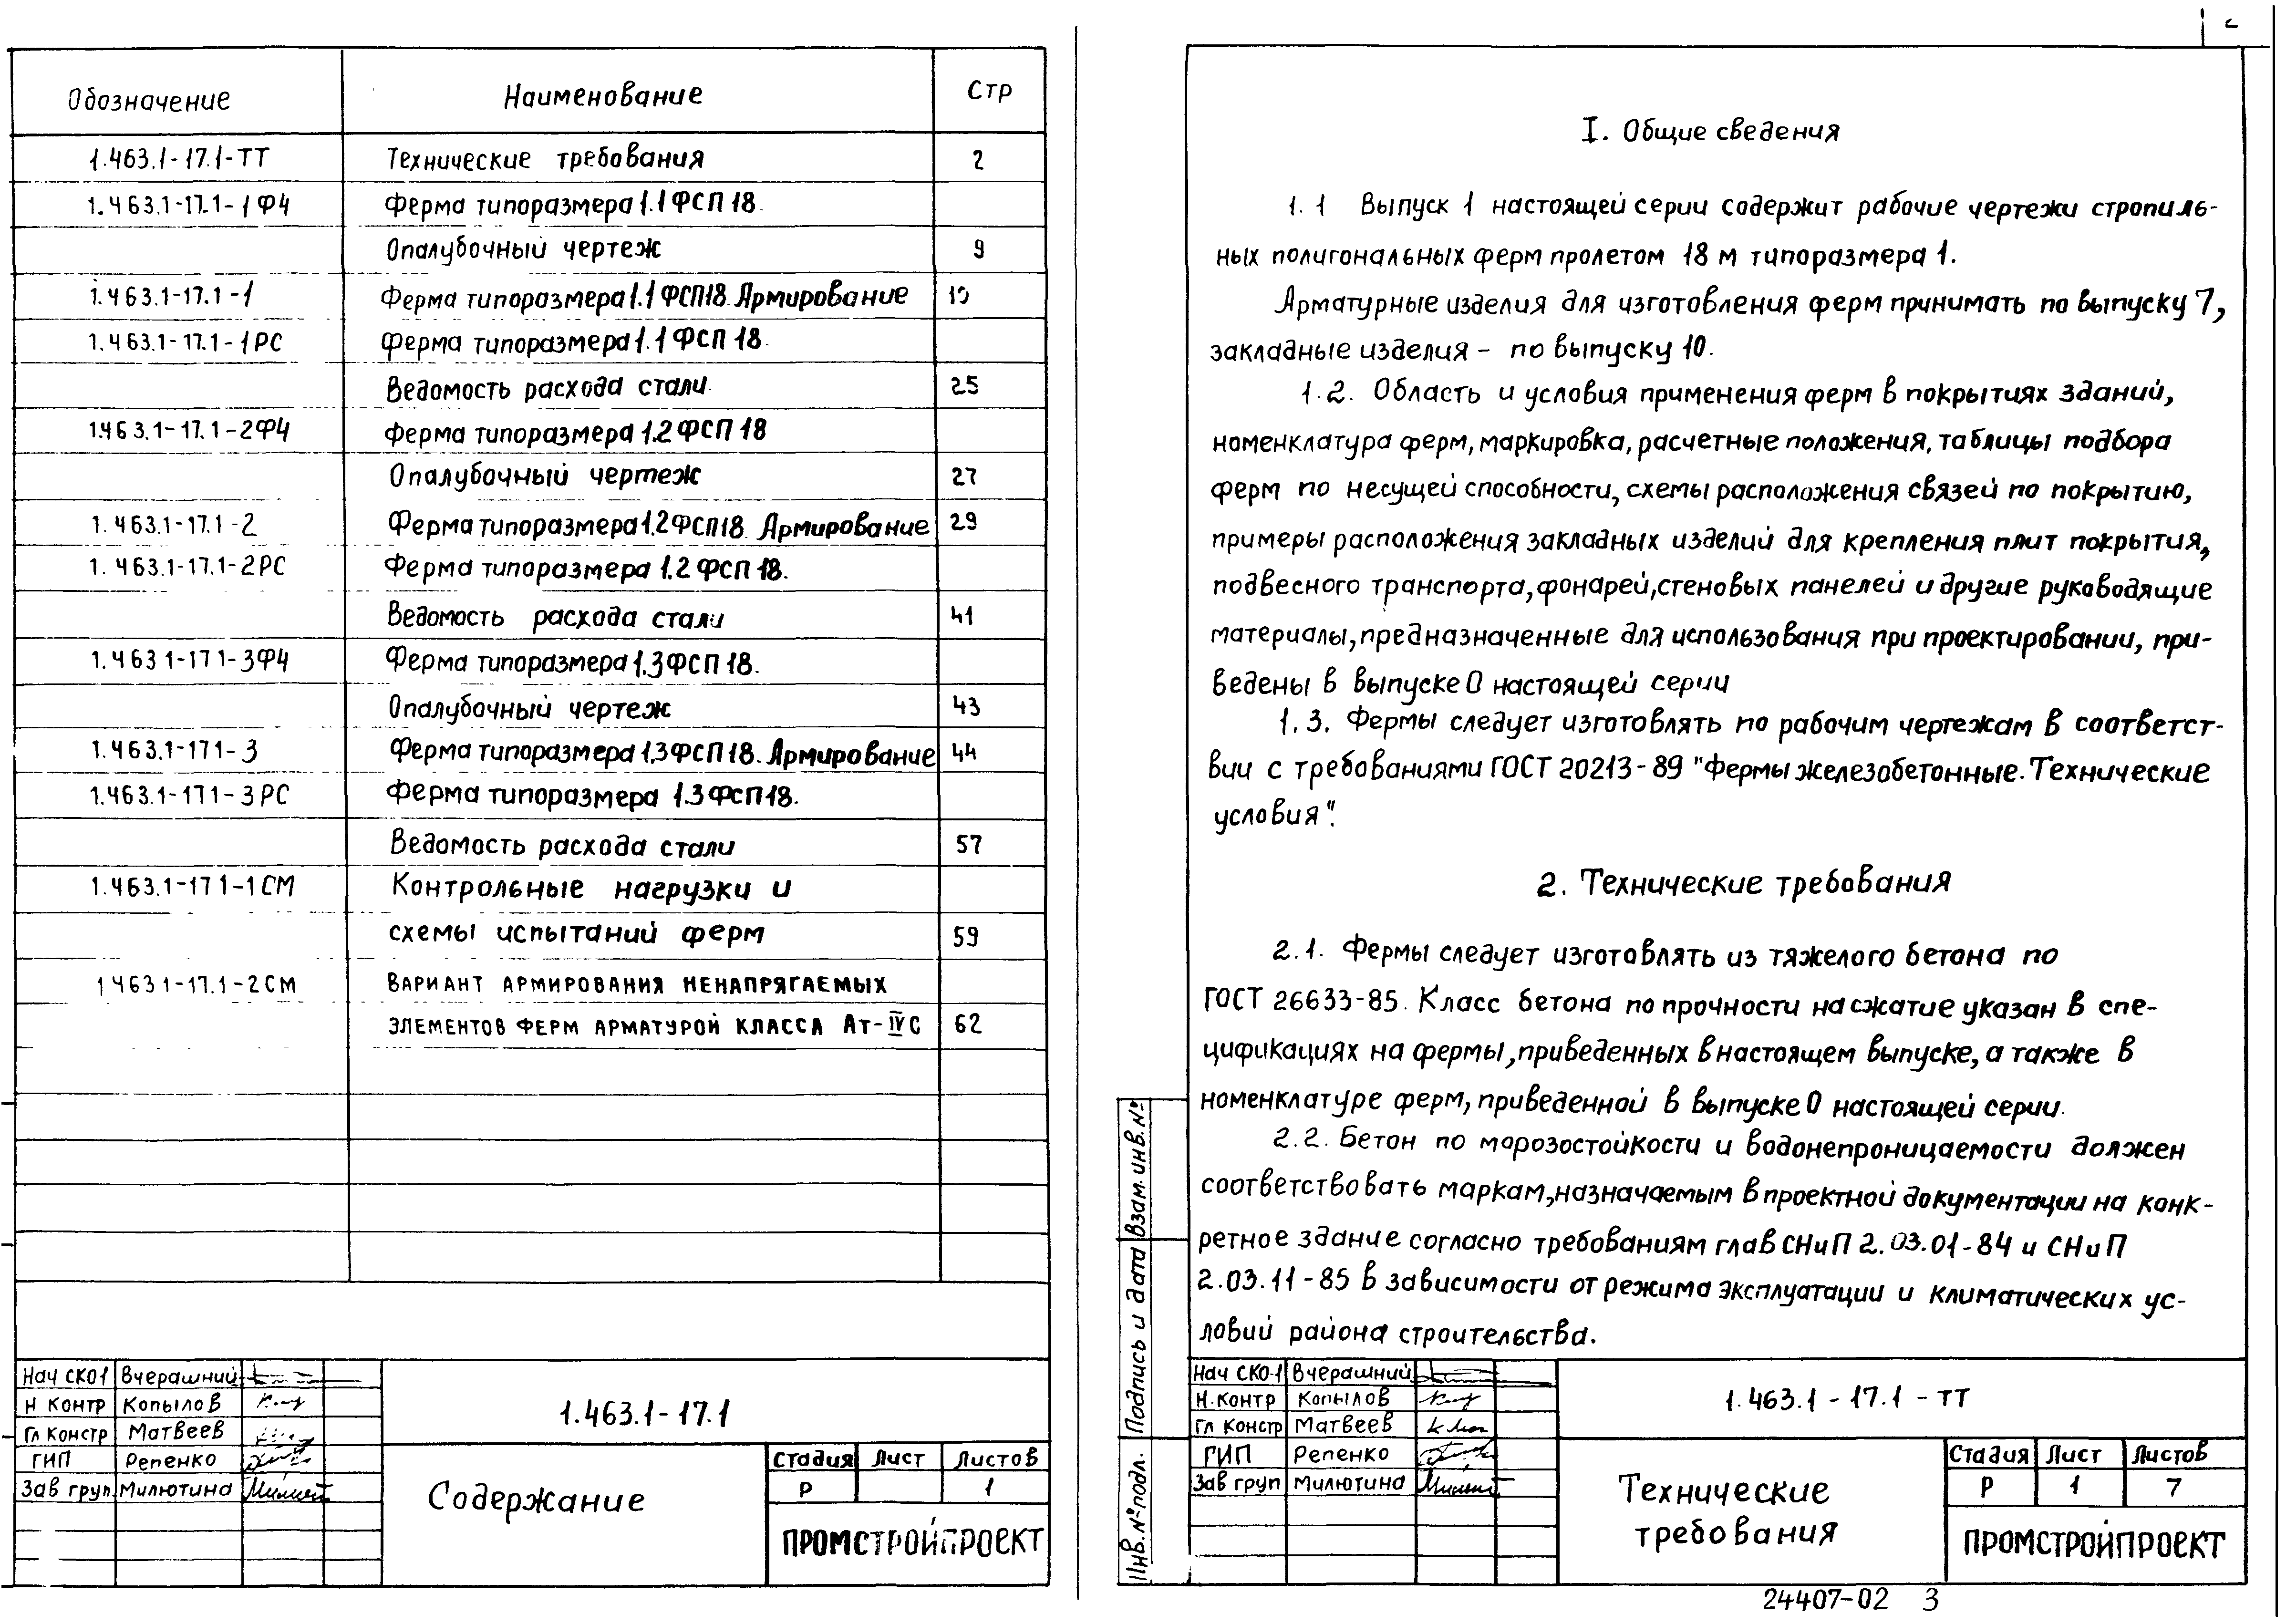 Обозначение Наименование Стр
1.463.1-17.1-ТТ Технические требования 2
1.463.1-17.1-1Ф4 Ферма типоразмера 1.1ФСП18.
Опалубочный чертеж 9
1.463.1-17.1-1 Ферма типоразмера 1.1ФСП18. Армирование 10
1.463.1-17.1-1РС Ферма типоразмера 1.1ФСП18.
Ведомость расхода стали. 25
1.463.1-17.1-2Ф4 Ферма типоразмера 1.2ФСП18
Опалубочный чертеж 27
1.463.1-17.1-2 Ферма типоразмера 1.2ФСП18. Армирование 29
1.463.1-17.1-2РС Ферма типоразмера 1.2ФСП18.
Ведомость расхода стали 41
1.463 1-17 1-3Ф4 Ферма типоразмера 1.3ФСП18.
Опалубочный чертеж 43
1.463.1-171-3 Ферма типоразмера 1.3ФСП18. Армирование 44
1.463.1-171-3РС Ферма типоразмера 1.3ФСП18.
Ведомость расхода стали 57
1.463.1-171-1СМ Контрольные нагрузки и
схемы испытаний ферм 59
1 463 1-17.1-2СМ ВАРИАНТ АРМИРОВАНИЯ НЕНАПРЯГАЕМЫХ
ЭЛЕМЕНТОВ ФЕРМ АРМАТУРОЙ КЛАССА Ат-IVС 62
Нач СКО1 Вчерашний
Н контр Копылов
Гл констр Матвеев
ГИП Репенко
Зав груп. Милютина
1.463.1-17.1
Содержание
Стадия Лист Листов
Р 1
ПРОМСТРОЙПРОЕКТ
I. Общие сведения
1.1 Выпуск 1 настоящей серии содержит рабочие чертежи стропиль-
ных полигональных ферм пролетом 18 м типоразмера 1.
Арматурные изделия для изготовления ферм принимать по выпуску 7,
закладные изделия - по выпуску 10.
1.2. Область и условия применения ферм в покрытиях зданий,
номенклатура ферм, маркировка, расчетные положения, таблицы подбора
ферм по несущей способности, схемы расположения связей по покрытию,
примеры расположения закладных изделий для крепления плит покрытия,
подвесного транспорта, фонарей, стеновых панелей и другие руководящие
материалы, предназначенные для использования при проектировании, при-
ведены в выпуске 0 настоящей серии
1.3. Фермы следует изготовлять по рабочим чертежам в соответст-
вии с требованиями ГОСТ 20213-89 "Фермы железобетонные. Технические
условия".
2. Технические требования
2.1. Фермы следует изготовлять из тяжелого бетона по
ГОСТ 26633-85. Класс бетона по прочности на сжатие указан в спе-
цификациях на фермы, приведенных в настоящем выпуске, а также в
номенклатуре ферм, приведенной в выпуске 0 настоящей серии.
2.2. Бетон по морозостойкости и водонепроницаемости должен
соответствовать маркам, назначаемым в проектной документации на конк-
ретное здание согласно требованиям глав СНиП 2.03.01-84 и СНиП
2.03.11-85 в зависимости от режима эксплуатации и климатических ус-
ловий района строительства.
Инв. № подл. Подпись и дата Взам. инв. №
Нач СКО-1 Вчерашний
Н.контр Копылов
Гл констр Матвеев
ГИП Репенко
Зав груп Милютина
1.463.1-17.1-ТТ
Технические
требования
Стадия Лист Листов
Р 1 7
ПРОМСТРОЙПРОЕКТ
24407-02 3